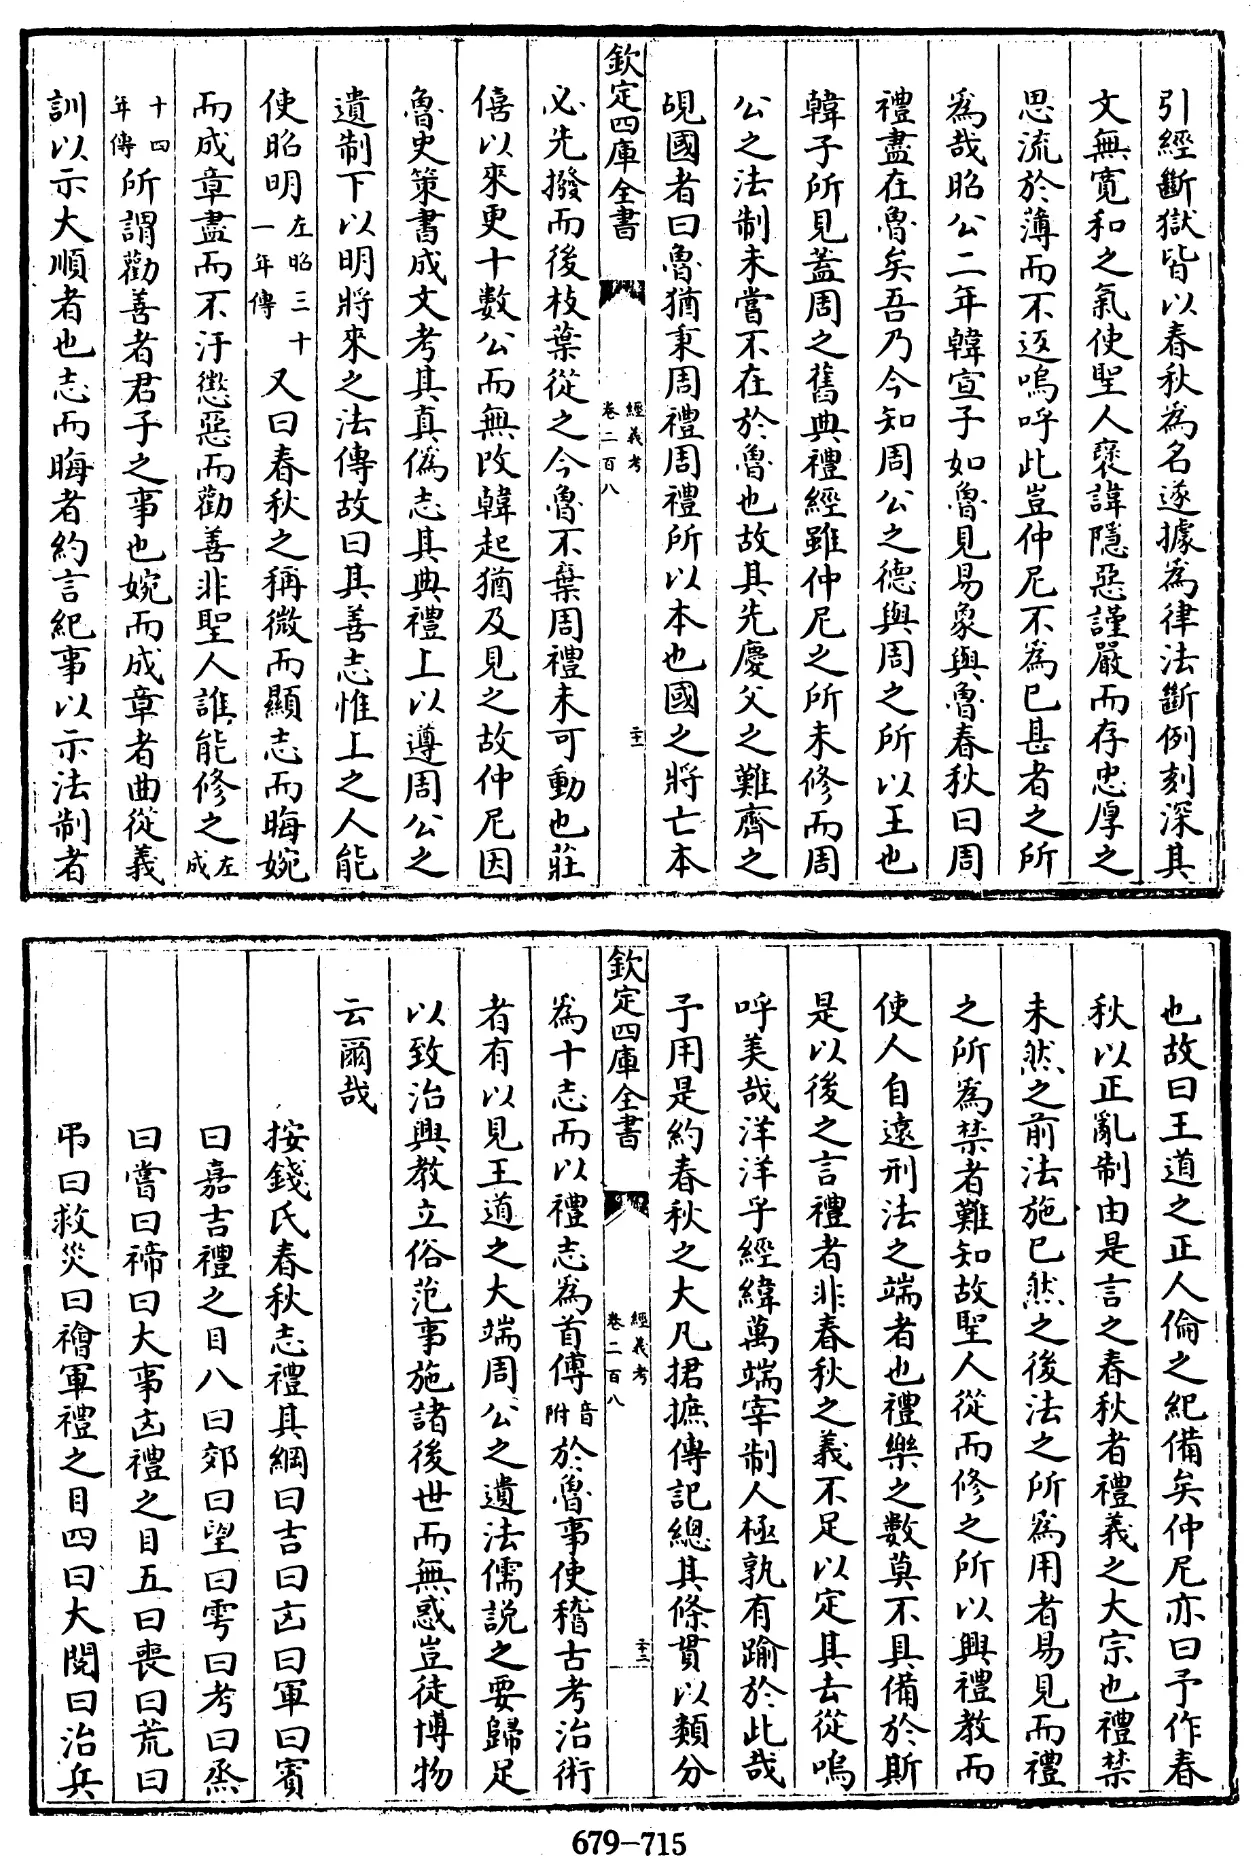 引經斷獄皆以春秋為名遂據為律法斷例刻深其
文無寛和之氣使聖人襃諱隱惡謹嚴而存忠厚之
思流於薄而不返嗚呼此豈仲尼不為已甚者之所
為哉昭公二年韓宣子如魯見易象與魯春秋曰周
禮盡在魯矣吾乃今知周公之德與周之所以王也
韓子所見蓋周之舊典禮經雖仲尼之所未修而周
公之法制未嘗不在於魯也故其先慶父之難齊之
覘國者曰魯猶秉周禮周禮所以本也國之將亡本
欽定四庫全書
經義考
卷二百八
二十二
必先撥而後枝葉從之今魯不棄周禮未可動也莊
僖以來更十數公而無改韓起猶及見之故仲尼因
魯史策書成文考其真偽志其典禮上以遵周公之
遺制下以明將來之法傳故曰其善志惟上之人能
使昭明左昭三十一年傳又曰春秋之稱微而顯志而晦婉
而成章盡而不汙懲惡而勸善非聖人誰能修之左成
十四年傳所謂勸善者君子之事也婉而成章者曲從義
訓以示大順者也志而晦者約言紀事以示法制者
也故曰王道之正人倫之紀備矣仲尼亦曰予作春
秋以正亂制由是言之春秋者禮義之大宗也禮禁
未然之前法施已然之後法之所為用者易見而禮
之所為禁者難知故聖人從而修之所以興禮教而
使人自遠刑法之端者也禮樂之數莫不具備於斯
是以後之言禮者非春秋之義不足以定其去從嗚
呼美哉洋洋乎經緯萬端宰制人極孰有踰於此哉
予用是約春秋之大凡捃摭傳記總其條貫以類分
欽定四庫全書
經義考
卷二百八
二十三
為十志而以禮志為首傅音附於魯事使稽古考治術
者有以見王道之大端周公之遺法儒説之要歸足
以致治興教立俗范事施諸後世而無惑豈徒博物
云爾哉
按錢氏春秋志禮其綱曰吉曰凶曰軍曰賓
曰嘉吉禮之目八曰郊曰望曰雩曰考曰烝
曰嘗曰禘曰大事凶禮之目五曰喪曰荒曰
弔曰救災曰禬軍禮之目四曰大閱曰治兵
679-715